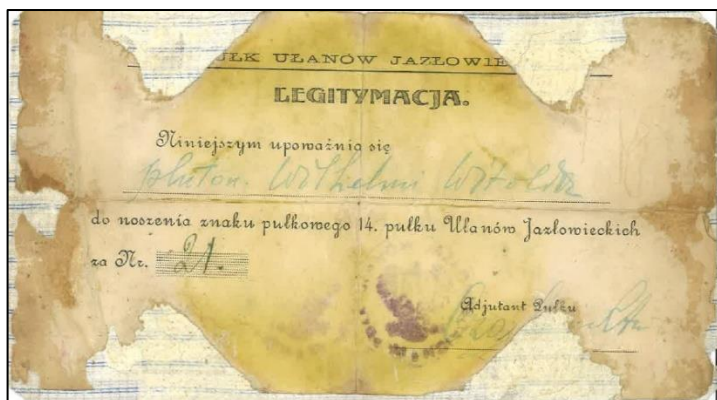 UŁK UŁANÓW JAZŁOWIE
LEGITYMACJA.
Niniejszym upoważnia się
pluton. Wilhelmi Witolda
do noszenia znaku pułkowego 14. pułku Ułanów Jazłowieckich
za Nr. 21.
Adjutant Pułku